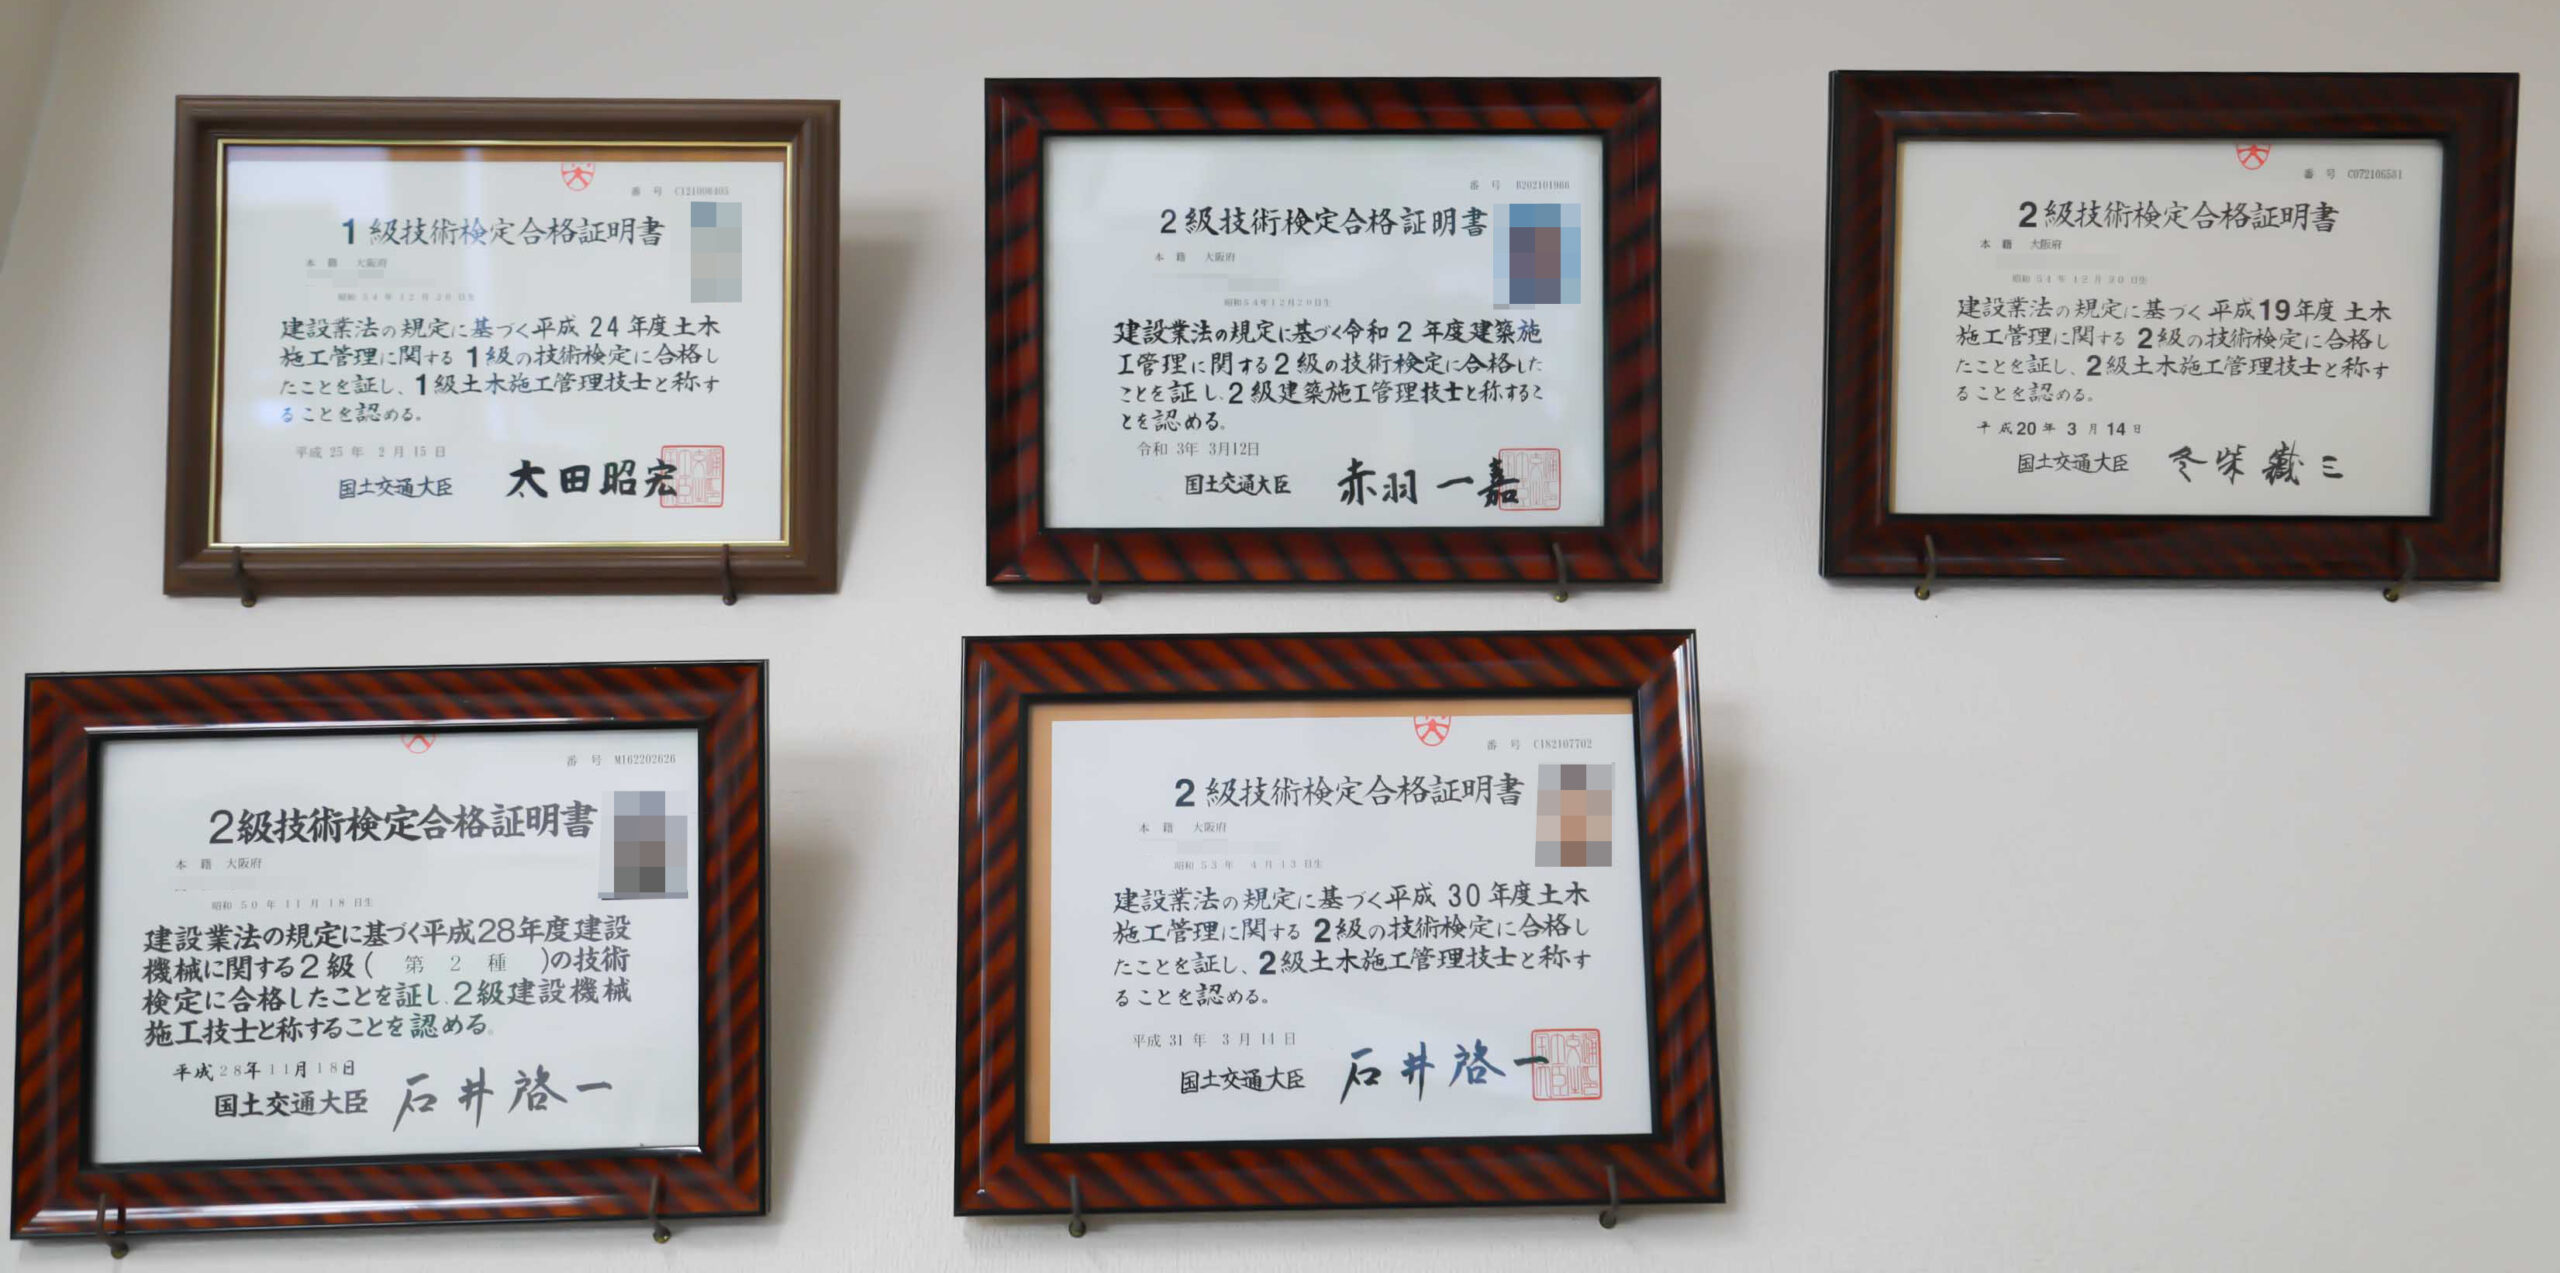 番 号 C121006405
1級技術検定合格証明書
本 籍 大阪府
昭和 54 年 12 月 20 日生
建設業法の規定に基づく平成 24 年度土木
施工管理に関する 1級の技術検定に合格し
たことを証し、1級土木施工管理技士と称す
ることを認める。
平成 25 年 2 月 15 日
国土交通大臣 太田昭宏
番 号 B202101966
2級技術検定合格証明書
本 籍 大阪府
昭和54年12月20日生
建設業法の規定に基づく令和 2 年度建築施
工管理に関する2級の技術検定に合格した
ことを証し、2級建築施工管理技士と称するこ
とを認める。
令和 3年 3月12日
国土交通大臣 赤羽一嘉
番 号 C072106581
2級技術検定合格証明書
本 籍 大阪府
昭和 54 年 12 月 20 日生
建設業法の規定に基づく平成19年度 土木
施工管理に関する 2級の技術検定に合格し
たことを証し、2級土木施工管理技士と称す
ることを認める。
平成20 年 3 月 14 日
国土交通大臣 冬柴鐵三
番 号 M162202626
2級技術検定合格証明書
本 籍 大阪府
昭和 50 年 11 月 18 日生
建設業法の規定に基づく平成28年度建設
機械に関する2級( 第 2 種 )の技術
検定に合格したことを証し、2級建設機械
施工技士と称することを認める。
平成28年11月18日
国土交通大臣 石井啓一
番 号 C182107702
2級技術検定合格証明書
本 籍 大阪府
昭和 53 年 4 月 13 日生
建設業法の規定に基づく平成 30 年度土木
施工管理に関する 2級の技術検定に合格し
たことを証し、2級土木施工管理技士と称す
ることを認める。
平成 31 年 3 月 14 日
国土交通大臣 石井啓一